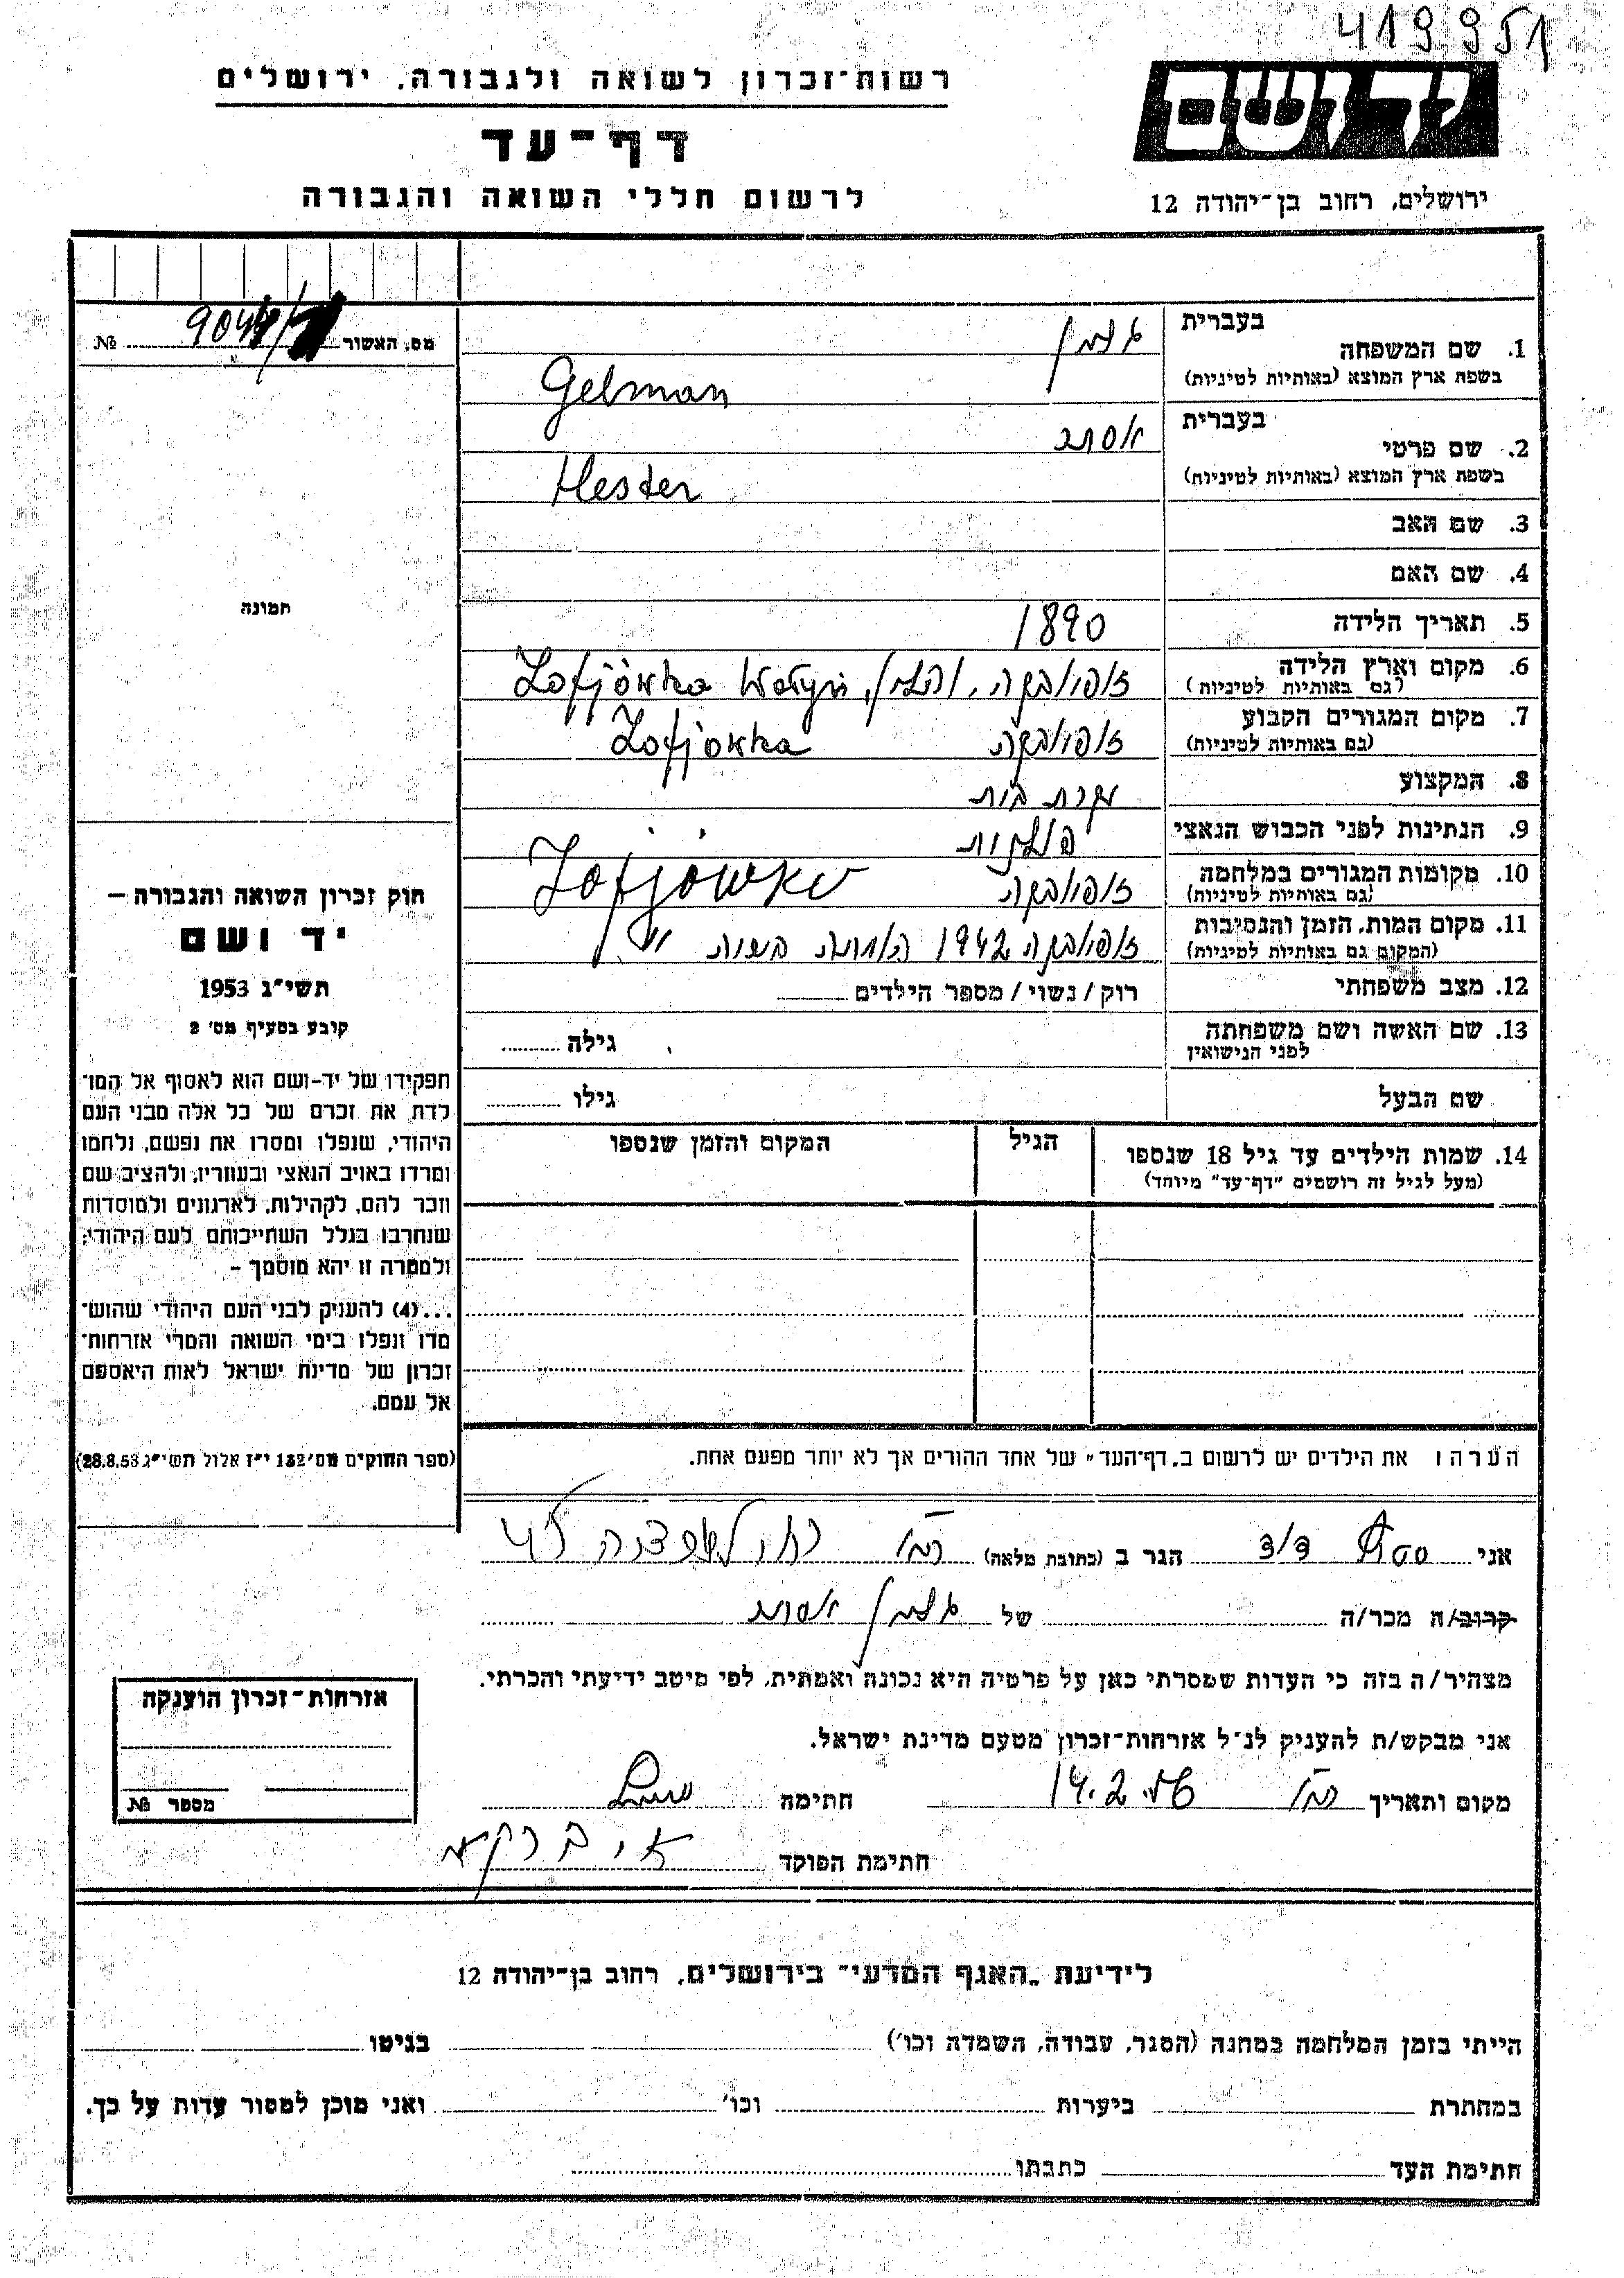 419951
רשות־זכרון לשואה ולגבורה, ירושלים
יד ושם
דף־עד
לרשום חללי השואה והגבורה
ירושלים, רחוב בן־יהודה 12
מס. האשור № 904
בעברית גלמן
1. שם המשפחה
בשפת ארץ המוצא (באותיות לטיניות) Gelman
בעברית אסתר
2. שם פרטי
בשפת ארץ המוצא (באותיות לטיניות) Hester
3. שם האב
4. שם האם
תמונה
5. תאריך הלידה 1890
6. מקום וארץ הלידה זופיובקה, ווהלין, Zofjówka Wołyń
(גם באותיות לטיניות)
7. מקום המגורים הקבוע זופיובקה Zofjowka
(גם באותיות לטיניות)
8. המקצוע עקרת בית
9. הנתינות לפני הכבוש הנאצי פולנית
10. מקומות המגורים במלחמה זופיובקה Zofjówka
(גם באותיות לטיניות)
11. מקום המות, הזמן והנסיבות זופיובקה 1942
(המקום גם באותיות לטיניות)
12. מצב משפחתי רוק / נשוי / מספר הילדים
13. שם האשה ושם משפחתה גילה
לפני הנישואין
שם הבעל גילו
14. שמות הילדים עד גיל 18 שנספו הגיל המקום והזמן שנספו
(מעל לגיל זה רושמים "דף־עד" מיוחד)
חוק זכרון השואה והגבורה –
יד ושם
תשי"ג 1953
קובע בסעיף מס' 2
תפקידו של יד-ושם הוא לאסוף אל המו־
לדת את זכרם של כל אלה מבני העם
היהודי, שנפלו ומסרו את נפשם, נלחמו
ומרדו באויב הנאצי ובעוזריו, ולהציב שם
וזכר להם, לקהילות, לארגונים ולמוסדות
שנחרבו בגלל השתייכותם לעם היהודי;
ולמטרה זו יהא מוסמך –
...(4) להעניק לבני העם היהודי שהוש־
מדו ונפלו בימי השואה והמרי אזרחות־
זכרון של מדינת ישראל לאות היאספם
אל עמם.
(ספר החוקים מס' 132 י"ז אלול תשי"ג 28.8.53)
הערה ו את הילדים יש לרשום ב„דף־העד" של אחד ההורים אך לא יותר מפעם אחת.
אני דוד הגר ב (כתובת מלאה)
קרוב/ה מכר/ה של גלמן אסתר
מצהיר/ה בזה כי העדות שמסרתי כאן על פרטיה היא נכונה ואמתית, לפי מיטב ידיעתי והכרתי.
אני מבקש/ת להעניק לנ"ל אזרחות־זכרון מטעם מדינת ישראל.
מקום ותאריך 14.2.56 חתימה
חתימת הפוקד
אזרחות־זכרון הוענקה
מספר №
לידיעת „האגף המדעי" בירושלים, רחוב בן־יהודה 12
הייתי בזמן המלחמה במחנה (הסגר, עבודה, השמדה וכו') בגיטו
במחתרת ביערות וכו' ואני מוכן למסור עדות על כך.
חתימת העד כתבתו